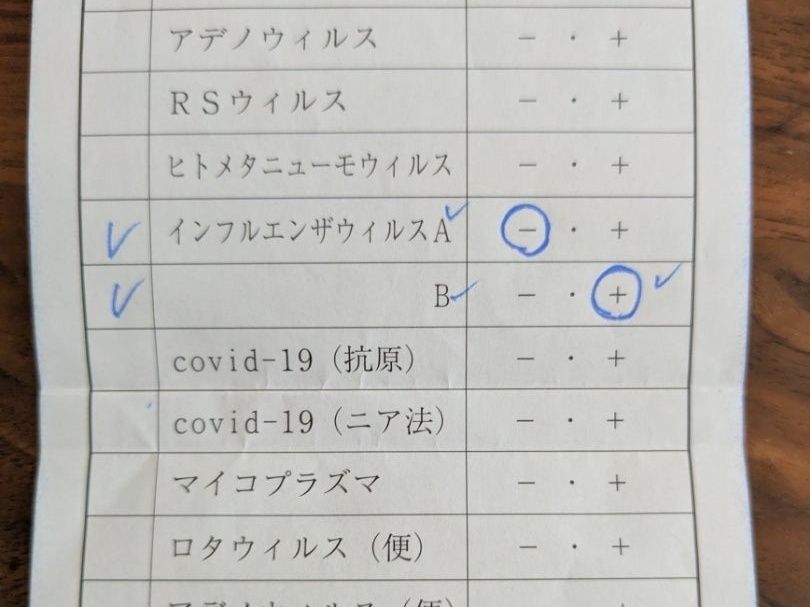 アデノウィルス － ・ ＋
ＲＳウィルス － ・ ＋
ヒトメタニューモウィルス － ・ ＋
インフルエンザウィルスA － ・ ＋
B － ・ ＋
covid-19（抗原） － ・ ＋
covid-19（ニア法） － ・ ＋
マイコプラズマ － ・ ＋
ロタウィルス（便） － ・ ＋